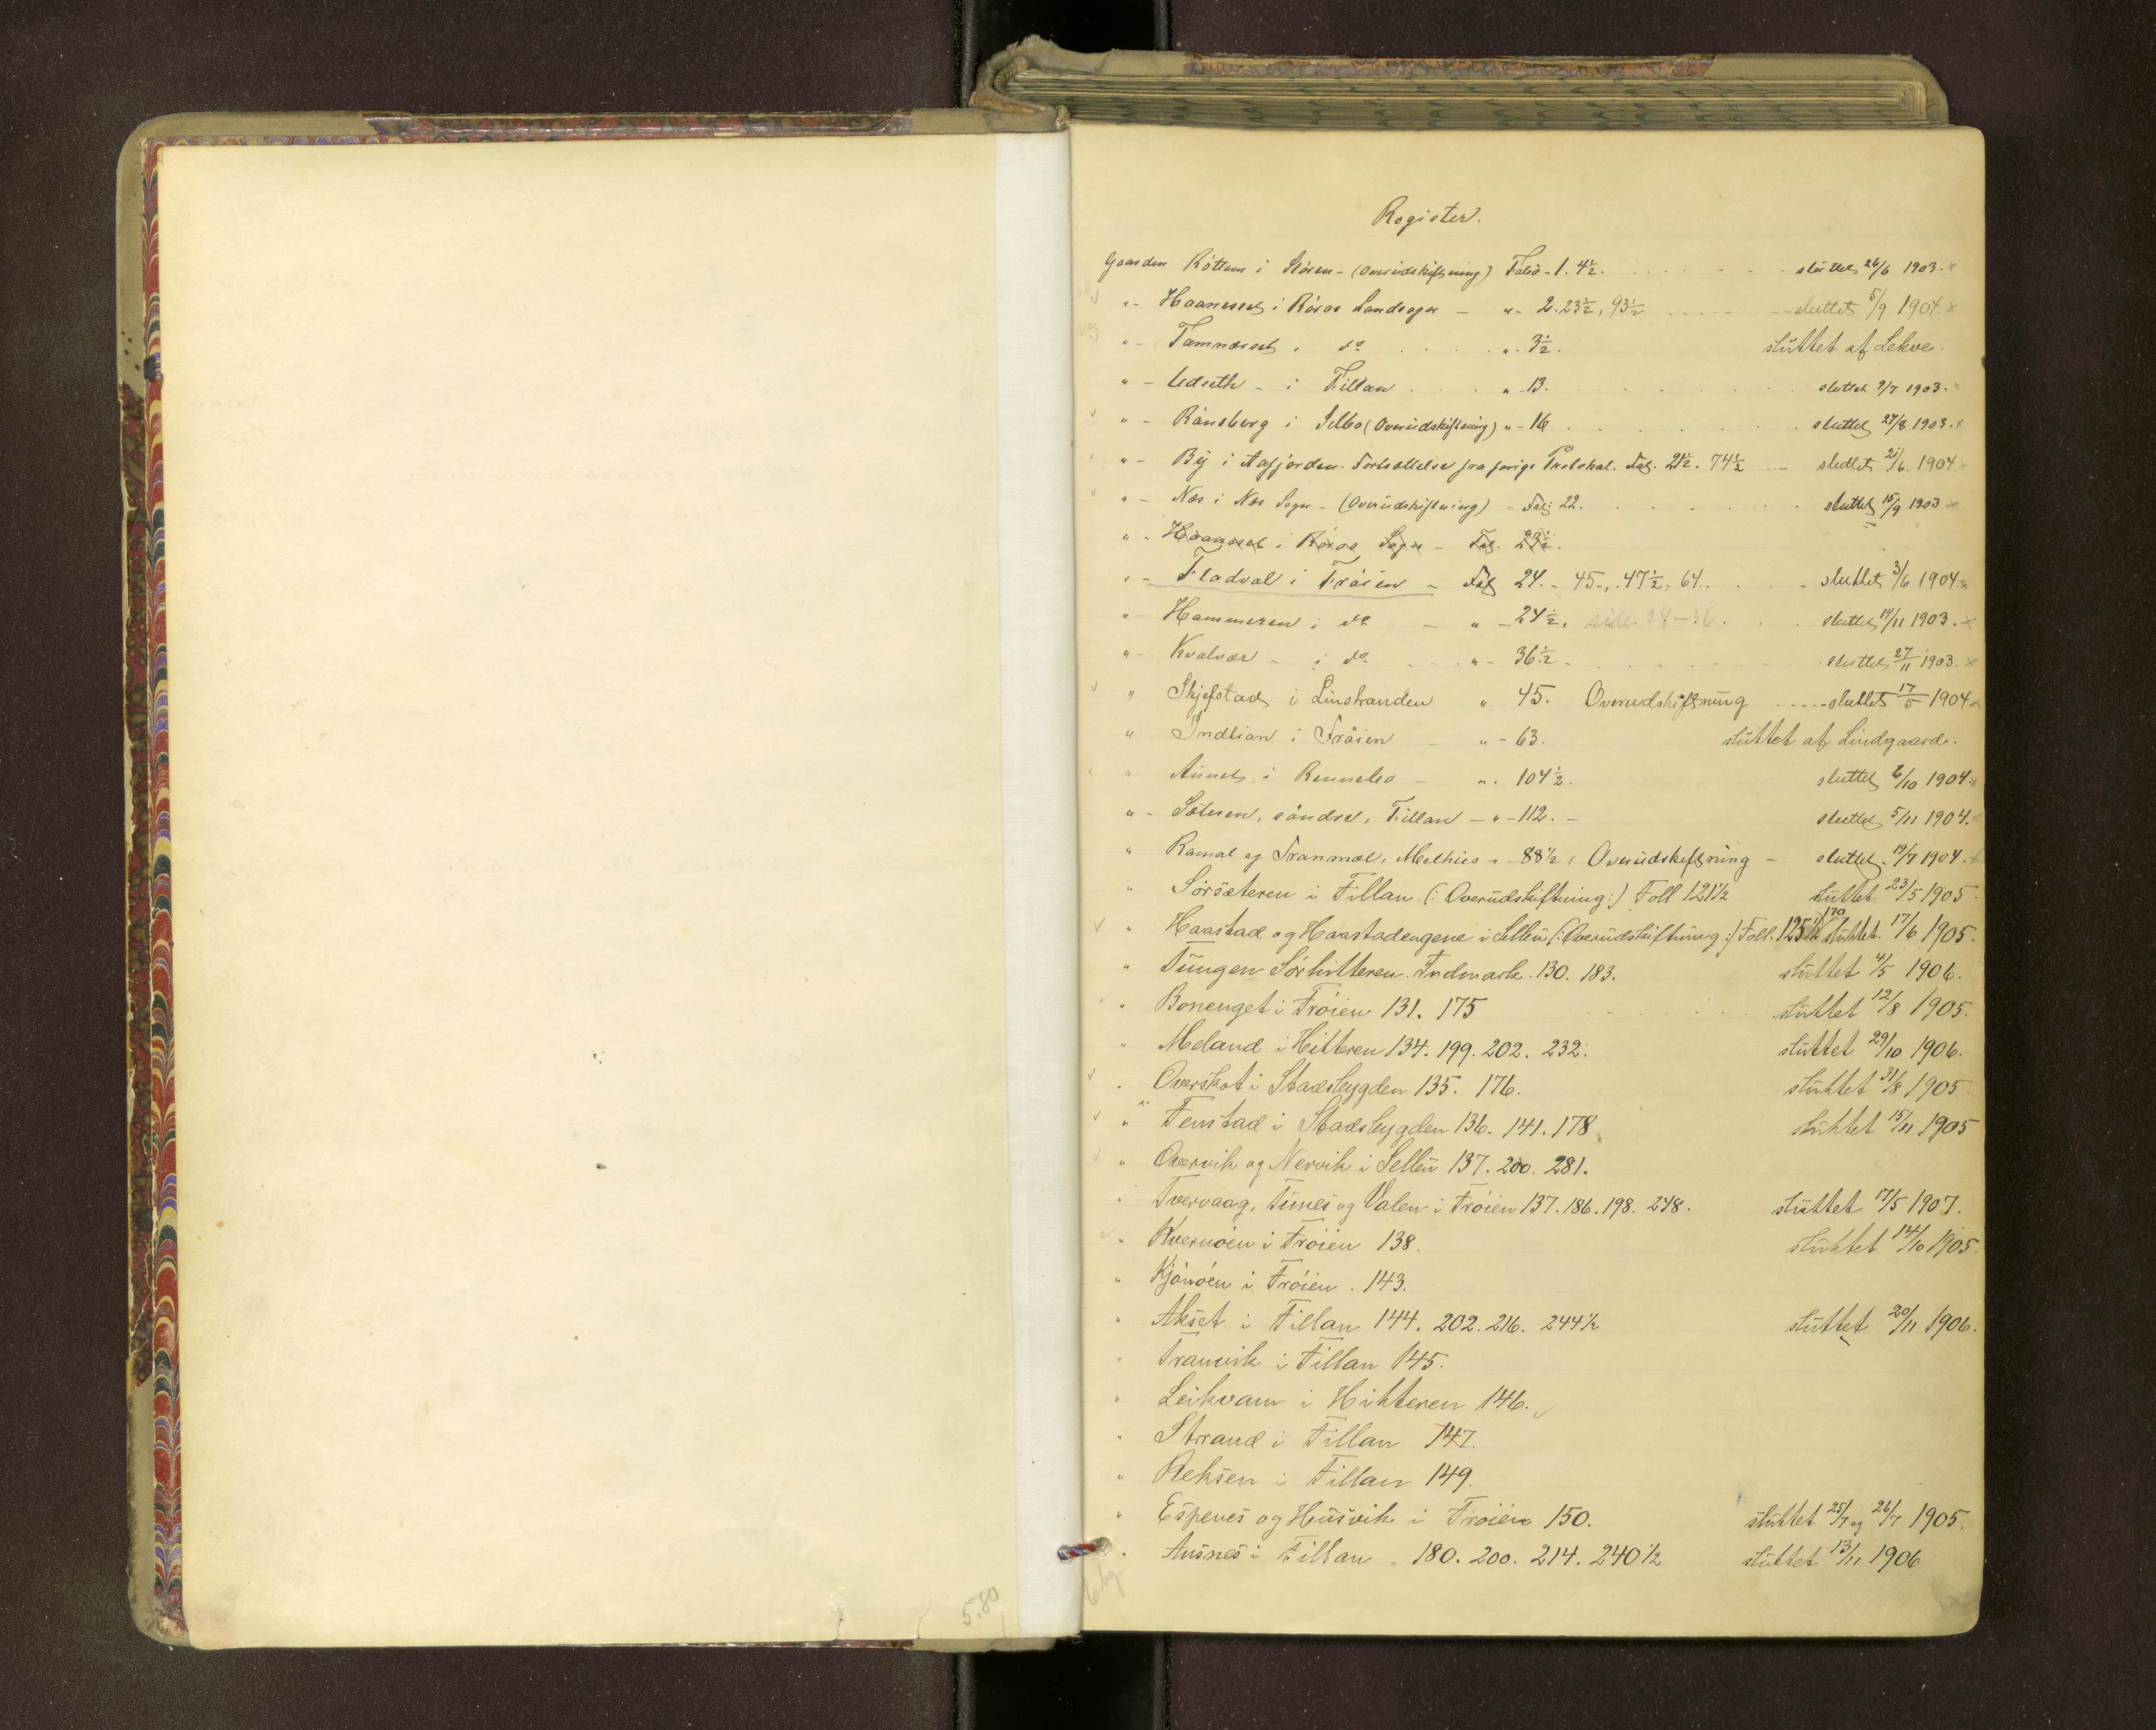 Register.
Gaarden Röttem i Stören - (Overudskiftning) Folio - 1. 4½. sluttet 26/6 1903. x
" - Haanesset i Röros Landsogn - " - 2. 23½, 93½ sluttet 5/9 1904. x
" - Tamneset i do " - 3½. sluttet af Lekve.
" - i Fillan " - 13. sluttet 9/7 1903.
" - Rånsberg i Selbo (Overudskiftning) " - 16 sluttet 27/8 1903. x
" - By i Aafjorden. Fortsættelse fra forige Protokol. Fol. 21½. 74½ sluttet 21/6. 1904.
" - Næs i Næs Sogn - (Overudskiftning) - Fol: 22. sluttet 15/9 1903 x
" - Haanesset i Röros Sogn - Fol. 23½.
" - Fladval i Fröien - Fol 24. - 45-, 47½, 64. sluttet 3/6 1904. x
" - Hammeren i do - " - 24½, side 24-36. sluttet 19/11 1903. x
" - Kvalvær - i do " - 36½ - sluttet 27/11 1903. x
" Skjefstad i Leinstranden " 45. Overudskiftning sluttet 17/5 1904 x
" Indlian i Fröien - " - 63. sluttet af Lindgaard.
" Aunet i Rennebo - " . 104½. sluttet 6/10 1904. x
" - Sætren, söndre, Fillan - " - 112. - sluttet 5/11 1904.
" Ramal og Tranmæl, Melhus " - 88½, Overudskiftning - sluttet 19/7 1904. x
" Sörsæteren i Fillan (: Overudskiftning :) Foll 121½ sluttet 23/5 1905.
" Haastad og Haastadengene i Selbu (: Overudskiftning :) Foll. 125½ 170 sluttet 17/6 1905.
" Tungen Sörhitteren. Indmark. 130. 183. sluttet 4/5 1906.
" Bonenget i Fröien 131. 175 sluttet 12/8 1905.
" Meland i Hitteren 134. 199. 202. 232. sluttet 29/10 1906.
" Overskot i Stadsbygden 135. 176. sluttet 31/8 1905
" Fenstad i Stadsbygden 136. 141. 178 sluttet 15/11 1905
" Overvik og Nervik i Selbu 137. 200. 281.
" Tvervaag, Tunes og Valen i Fröien 137. 186. 198. 248. sluttet 17/5 1907.
" Kvernöen i Fröien 138. sluttet 14/10 1905.
" Kjönöen i Fröien . 143.
" Akset i Fillan 144. 202. 216. 244½ sluttet 20/11 1906.
" Tranvik i Fillan 145.
" Leikvam i Hitteren 146.
" Strand i Fillan 147.
" Reksen i Fillan 149.
" Espenes og Husvik i Fröien 150. sluttet 25/7 og 26/7 1905.
" Ausnes i Fillan . 180. 200. 214. 240½ sluttet 13/11 1906
5.80